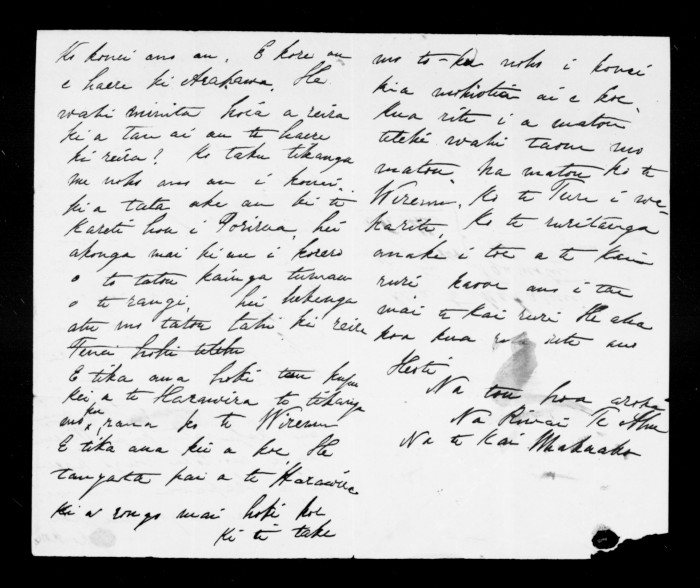 Ko konei ano au. E kore au
e haere ki Arakawa, He
wahi minita koia a reira
kia tau ai au te haere
ki reira? Ko taku tikanga
me noho ano au i konei.
kia tata ake au ki te
Kareti hou i Porirua, hei
akonga mai ki au i korero
o to tatou kainga tuman
o te rangi, hei hekenga
atu mo tatou tahi ki reira
Tenei hoki tetehi
E tika ana hoki kupu
kei a te Harawira to tikanga
mo raua ko te Wiremu
E tika ana kei a koe He
tangata pai a te Harawira
Ki a rongo mai hoki koe
ki te take
mo to noho i konei
kia mohiotia ai e koe,
kua rite i a matou
tetehi wahi taone mo
matou, ka matou ko te
Wiremu, Ko te Ture i we
karite, Ko te ruritanga
anake i toe a te Kai
ruri kaore ano i tae
mai te kai ruri He aha
koa kua rite ano
Heoti
Na tou hoa aroha
Na Riwai Te Ahu
Na te Kai Whakaako